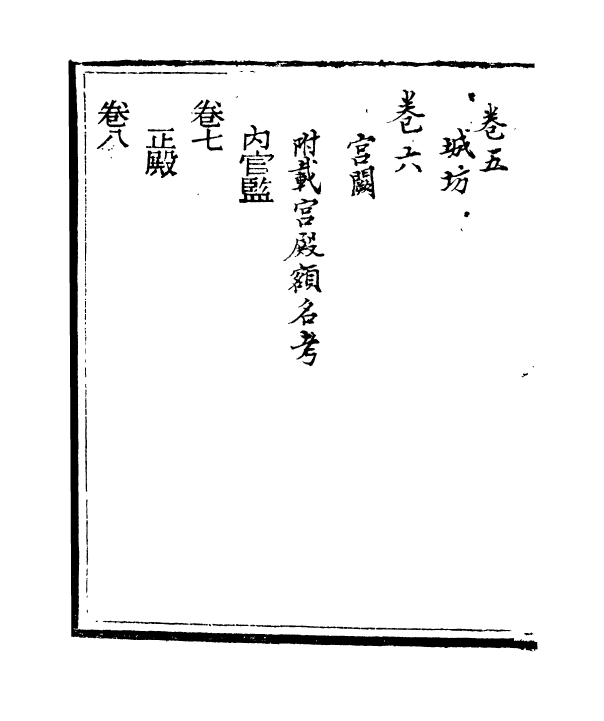 卷五
城坊
卷六
宫闕
附載宫殿額名考
內官監
卷七
正殿
卷八